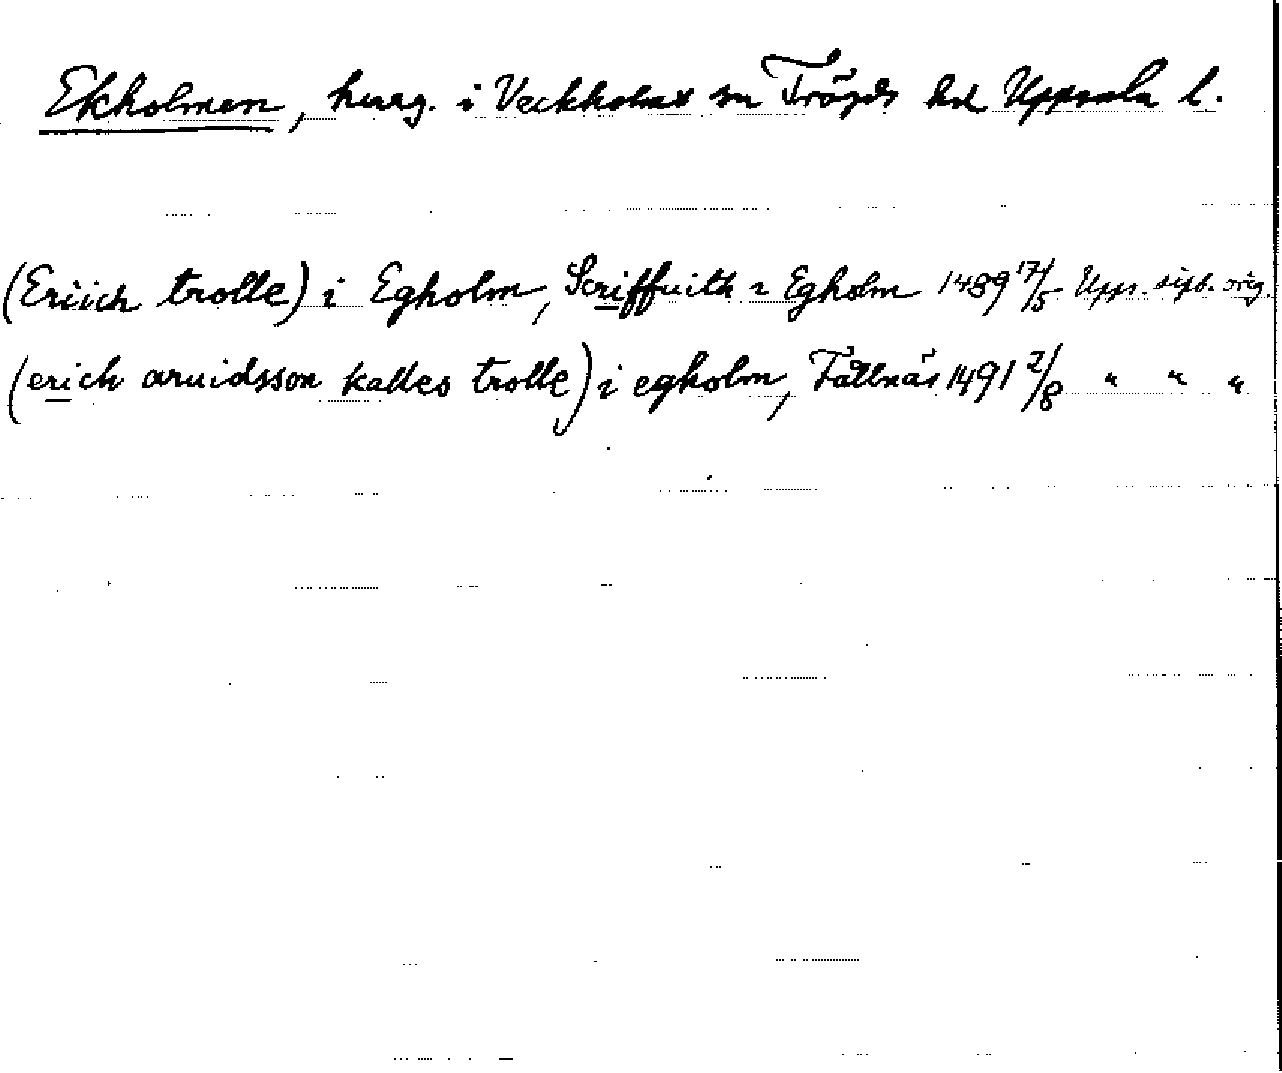 Ekholmen, herrg. i Veckholms sn Trögds hd Uppsala l.
(Eriich trolle) i Egholm, Scriffuith i Egholm 1489 17/5 Upps. sixt. orig.
(erich aruidsson kalles trolle) i egholm, Fållnäs 1491 2/8 " " "